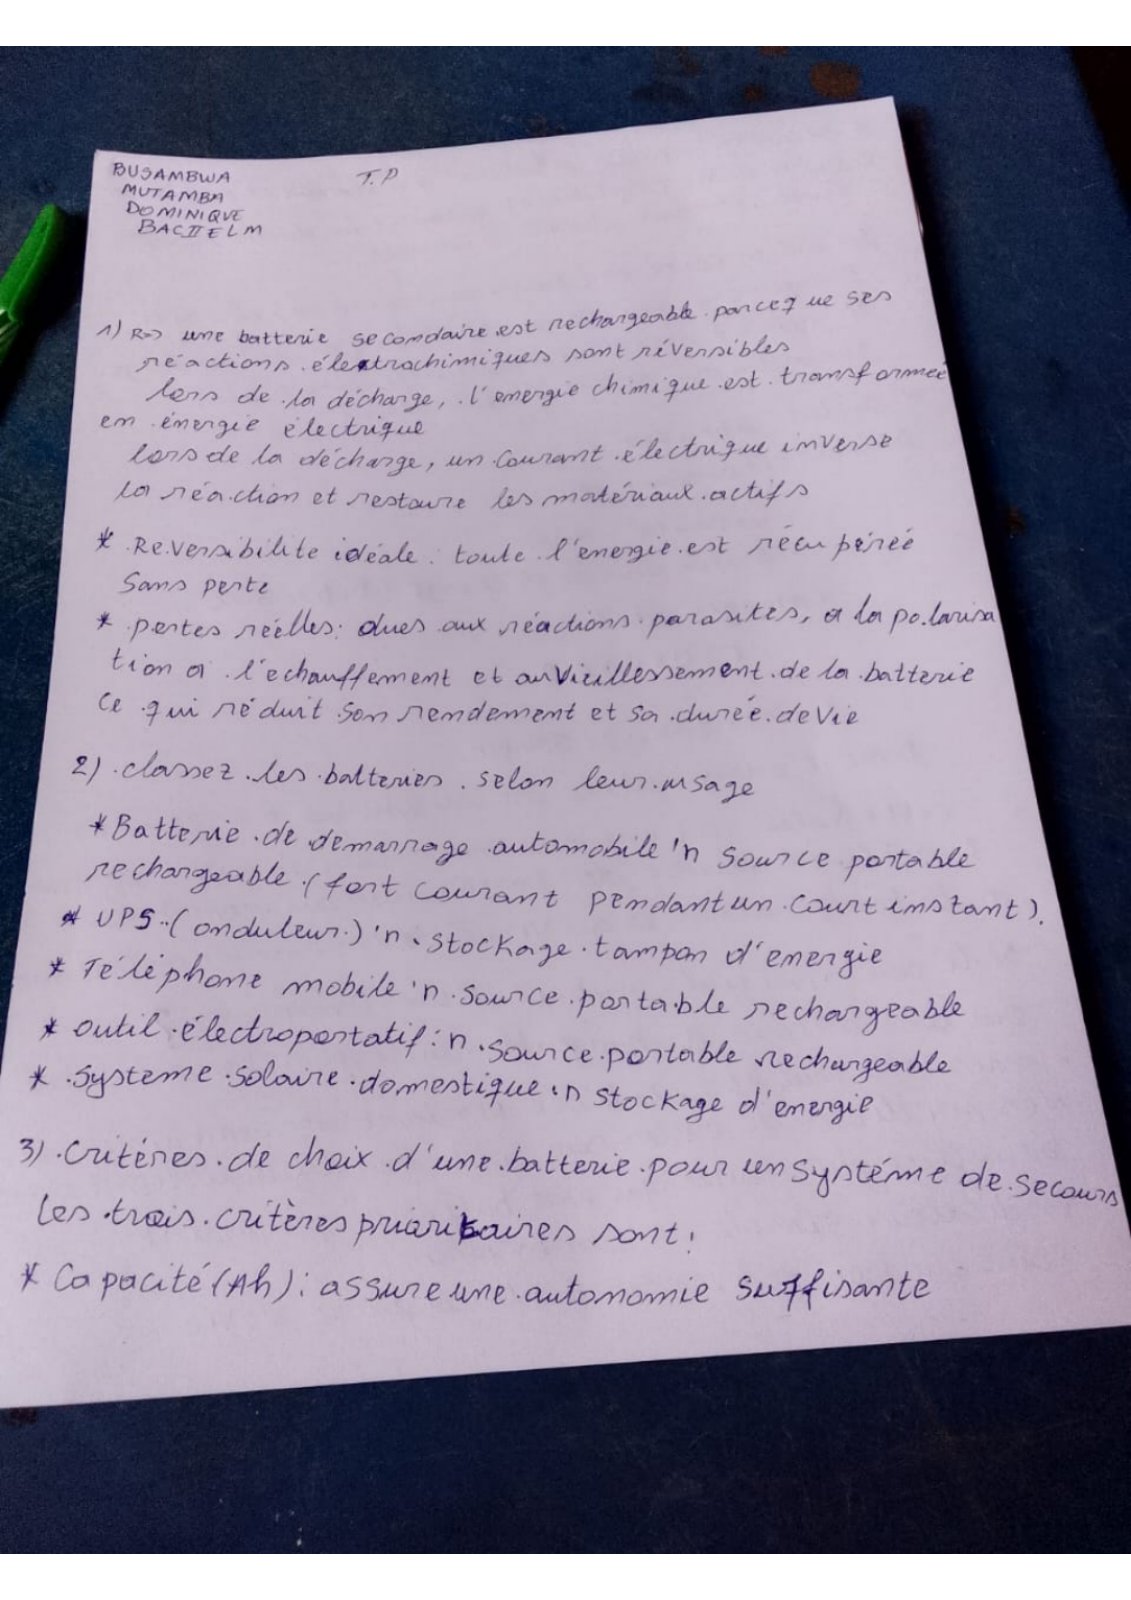 BUSAMBWA
MUTAMBA
DOMINIQUE
BACIIELM
T.P
1) R=> une batterie secondaire est rechargeable parceque ses
réactions électrochimiques sont réversibles
lors de la décharge, l'energie chimique est transformeé
en énergie électrique
lors de la décharge, un courant électrique inverse
la réaction et restaure les matériaux actifs
* Reversibilite idéale: toute l'energie est récupéreé
Sans perte
* pertes réelles: dues aux réactions parasites, a la polarisa
tion a l'echauffement et au Vieillessement de la batterie
Ce qui réduit son rendement et sa durée de Vie
2) classez les batteries selon leur usage
* Batterie de demarrage automobile 'n Source portable
rechargeable (fort courant pendant un court instant).
* UPS (onduleur) 'n stockage tampon d'energie
* Téléphone mobile 'n source portable rechargeable
* outil électroportatif: n source portable rechargeable
* systeme solaire domestique :n stockage d'energie
3) critéres de choix d'une batterie pour un systéme de secours
les trois critères prioritaires sont:
* Capacité (Ah): assure une autonomie suffisante